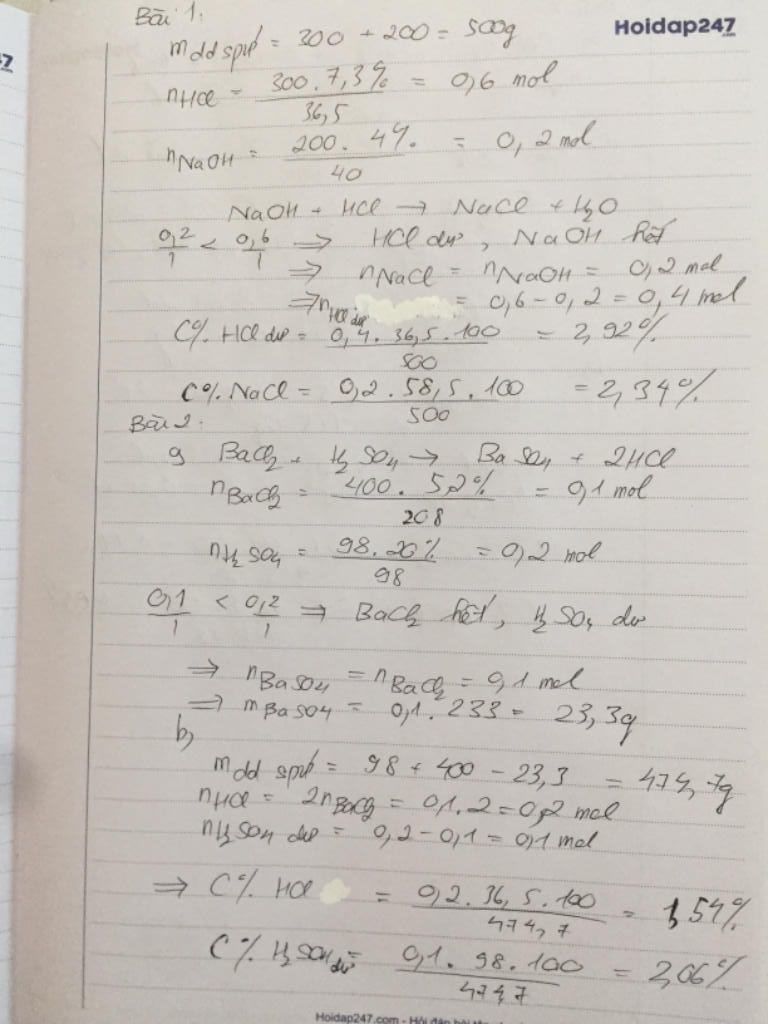 Bài 1:
Hoidap247
.com
7
m dd spứ = 300 + 200 = 500g
nHCl = 300.7,3% / 36,5 = 0,6 mol
nNaOH = 200.4% / 40 = 0,2 mol
NaOH + HCl → NaCl + H2O
0,2/1 < 0,6/1 ⇒ HCl dư, NaOH hết
⇒ nNaCl = nNaOH = 0,2 mol
⇒ nHCl dư = 0,6 - 0,2 = 0,4 mol
C% HCl dư = 0,4.36,5.100 / 500 = 2,92%
C% NaCl = 0,2.58,5.100 / 500 = 2,34%
Bài 2:
a, BaCl2 + H2SO4 → BaSO4 + 2HCl
nBaCl2 = 400.5,2% / 208 = 0,1 mol
nH2SO4 = 98.20% / 98 = 0,2 mol
0,1/1 < 0,2/1 ⇒ BaCl2 hết, H2SO4 dư
⇒ nBaSO4 = nBaCl2 = 0,1 mol
⇒ mBaSO4 = 0,1.233 = 23,3g
b,
m dd spứ = 98 + 400 - 23,3 = 474,7g
nHCl = 2nBaCl2 = 0,1.2 = 0,2 mol
nH2SO4 dư = 0,2 - 0,1 = 0,1 mol
⇒ C% HCl = 0,2.36,5.100 / 474,7 = 1,54%
C% H2SO4 dư = 0,1.98.100 / 474,7 = 2,06%